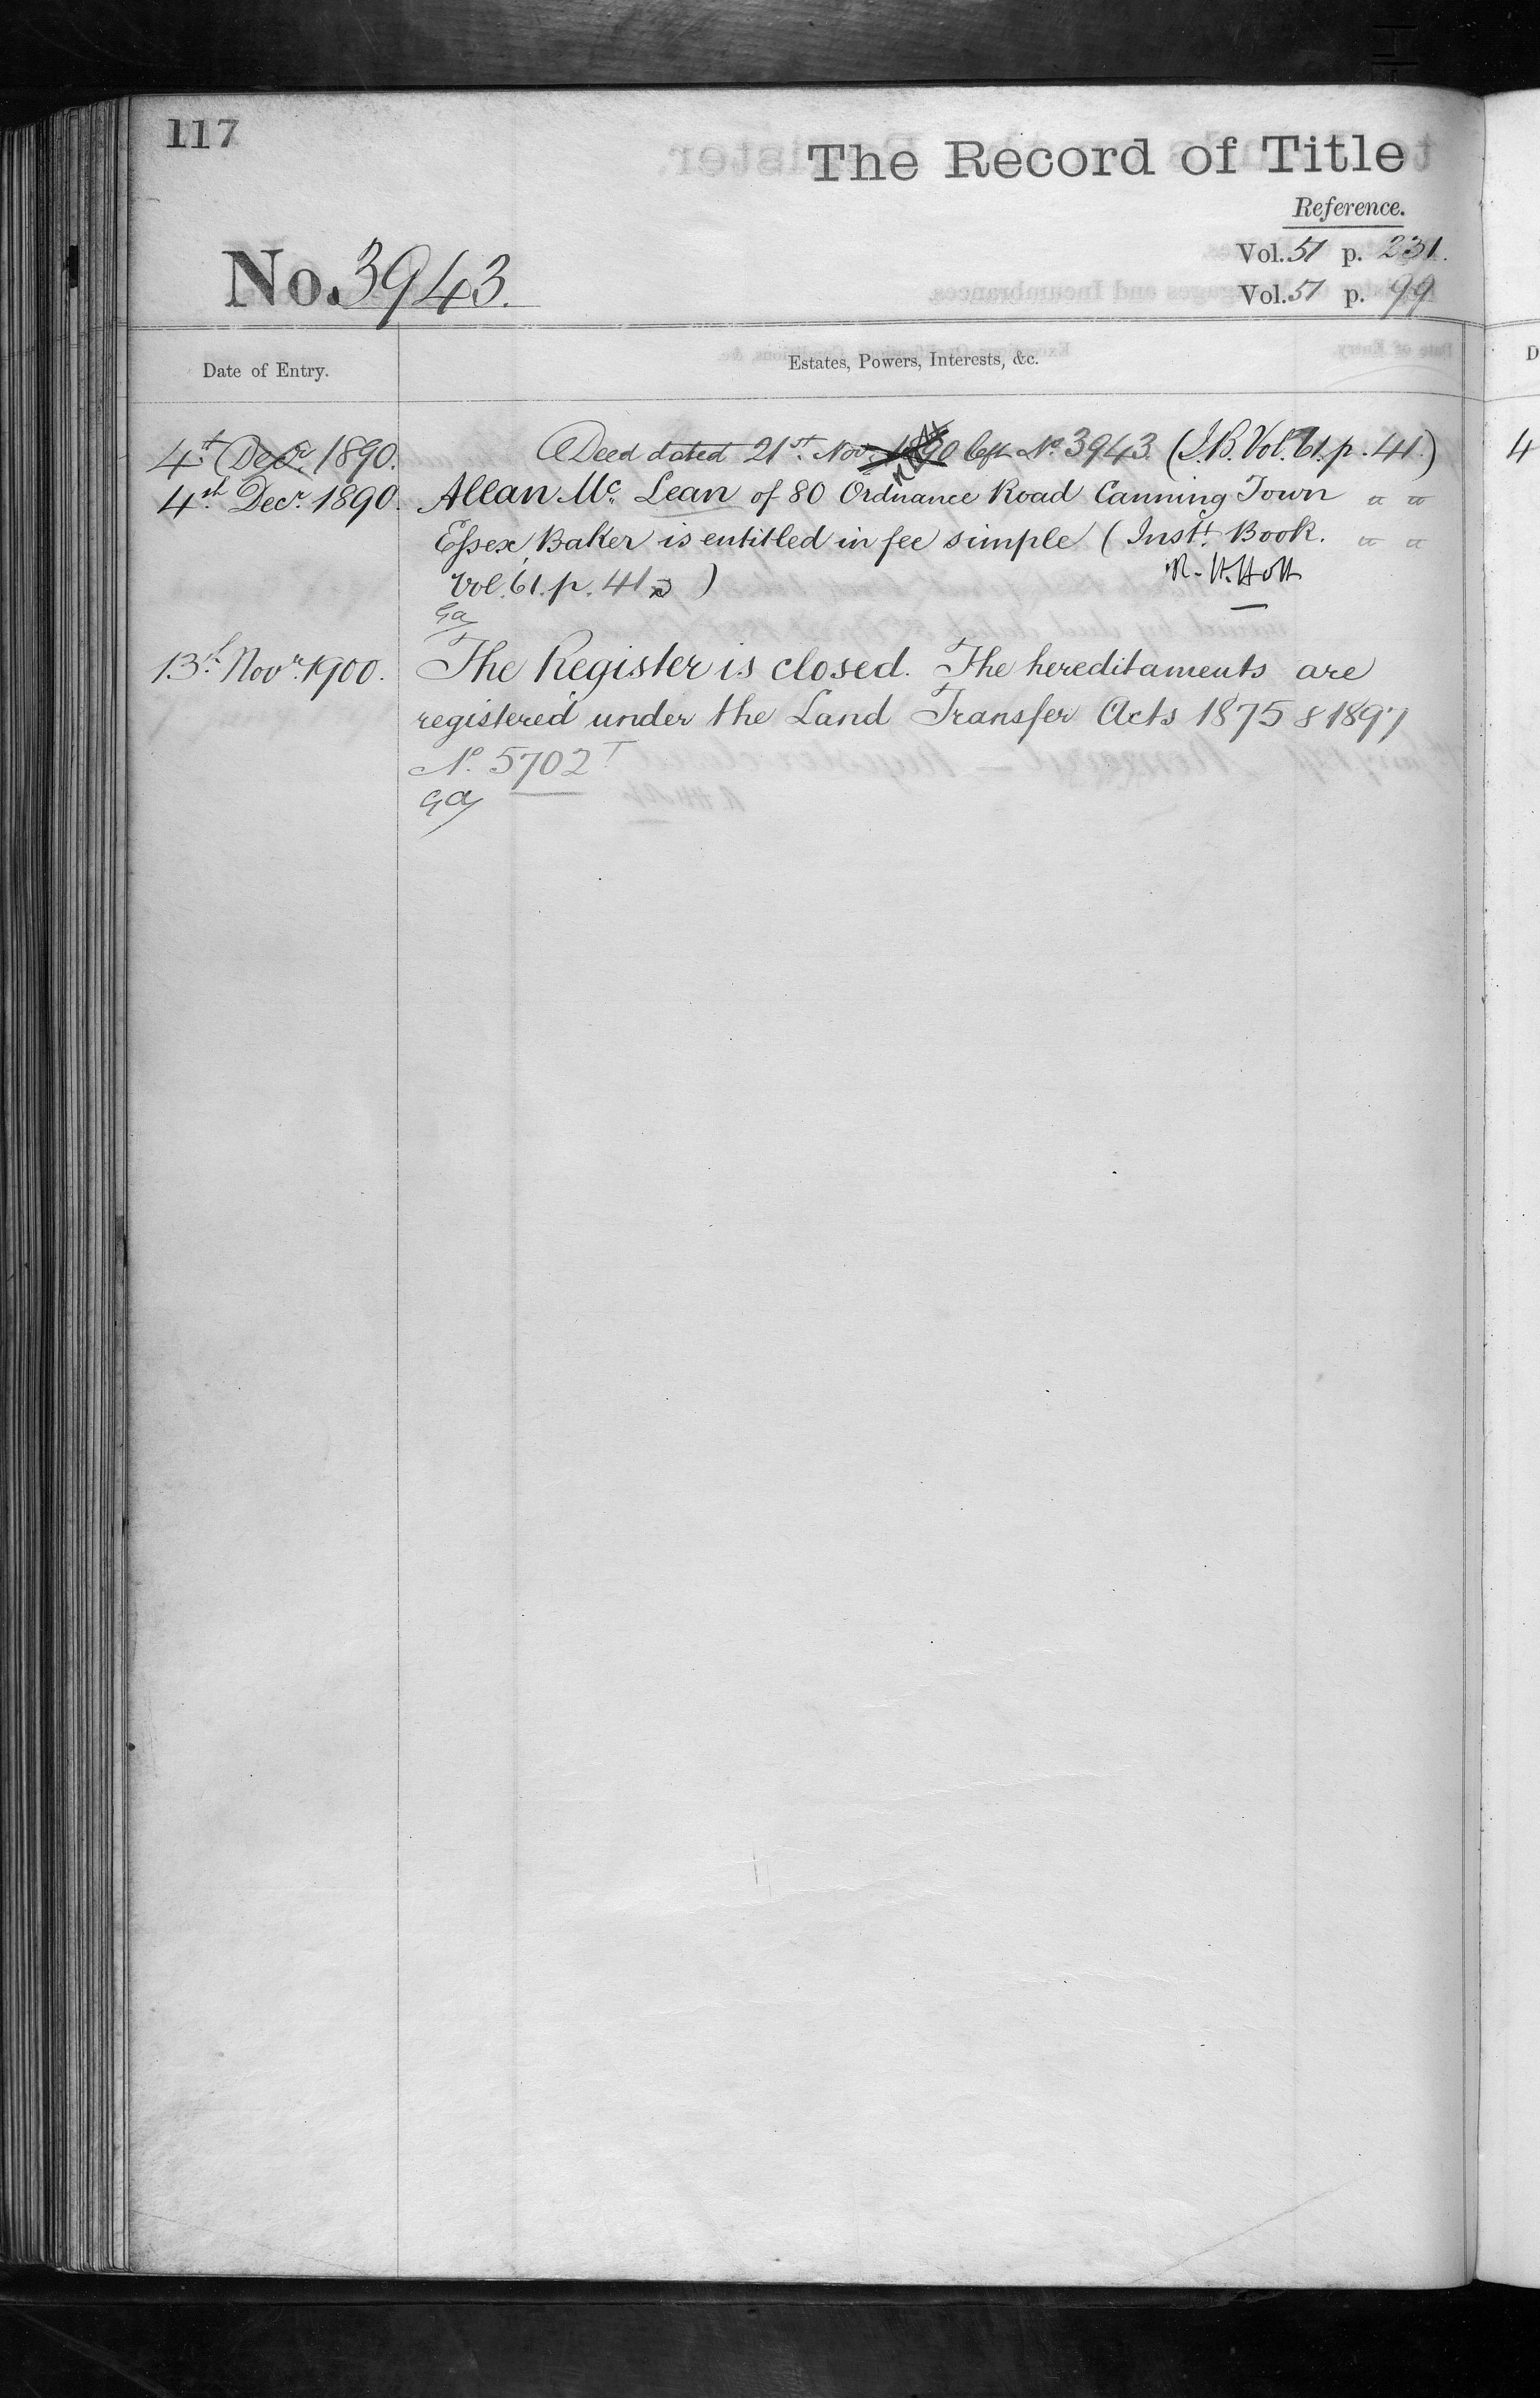 117
The Record of Title
Reference.
Vol. 51 p. 231.
Vol. 51 p. 99
No. 3943.
Date of Entry.
Estates, Powers, Interests, &c.
4th Decr. 1890. Deed dated 21st. Nov. 1890 left No. 3943. (I.B. Vol. 61. p. 41.)
4th Decr. 1890. Allan Mc. Lean of 80 Ordnance Road Canning Town
Essex Baker is entitled in fee simple (Instt. Book.
Vol. 61. p. 41 )
R. H. Holt
Ga
13th Novr. 1900. The Register is closed. The hereditaments are
registered under the Land Transfer Acts 1875 & 1897
No. 5702 T
Ga
4